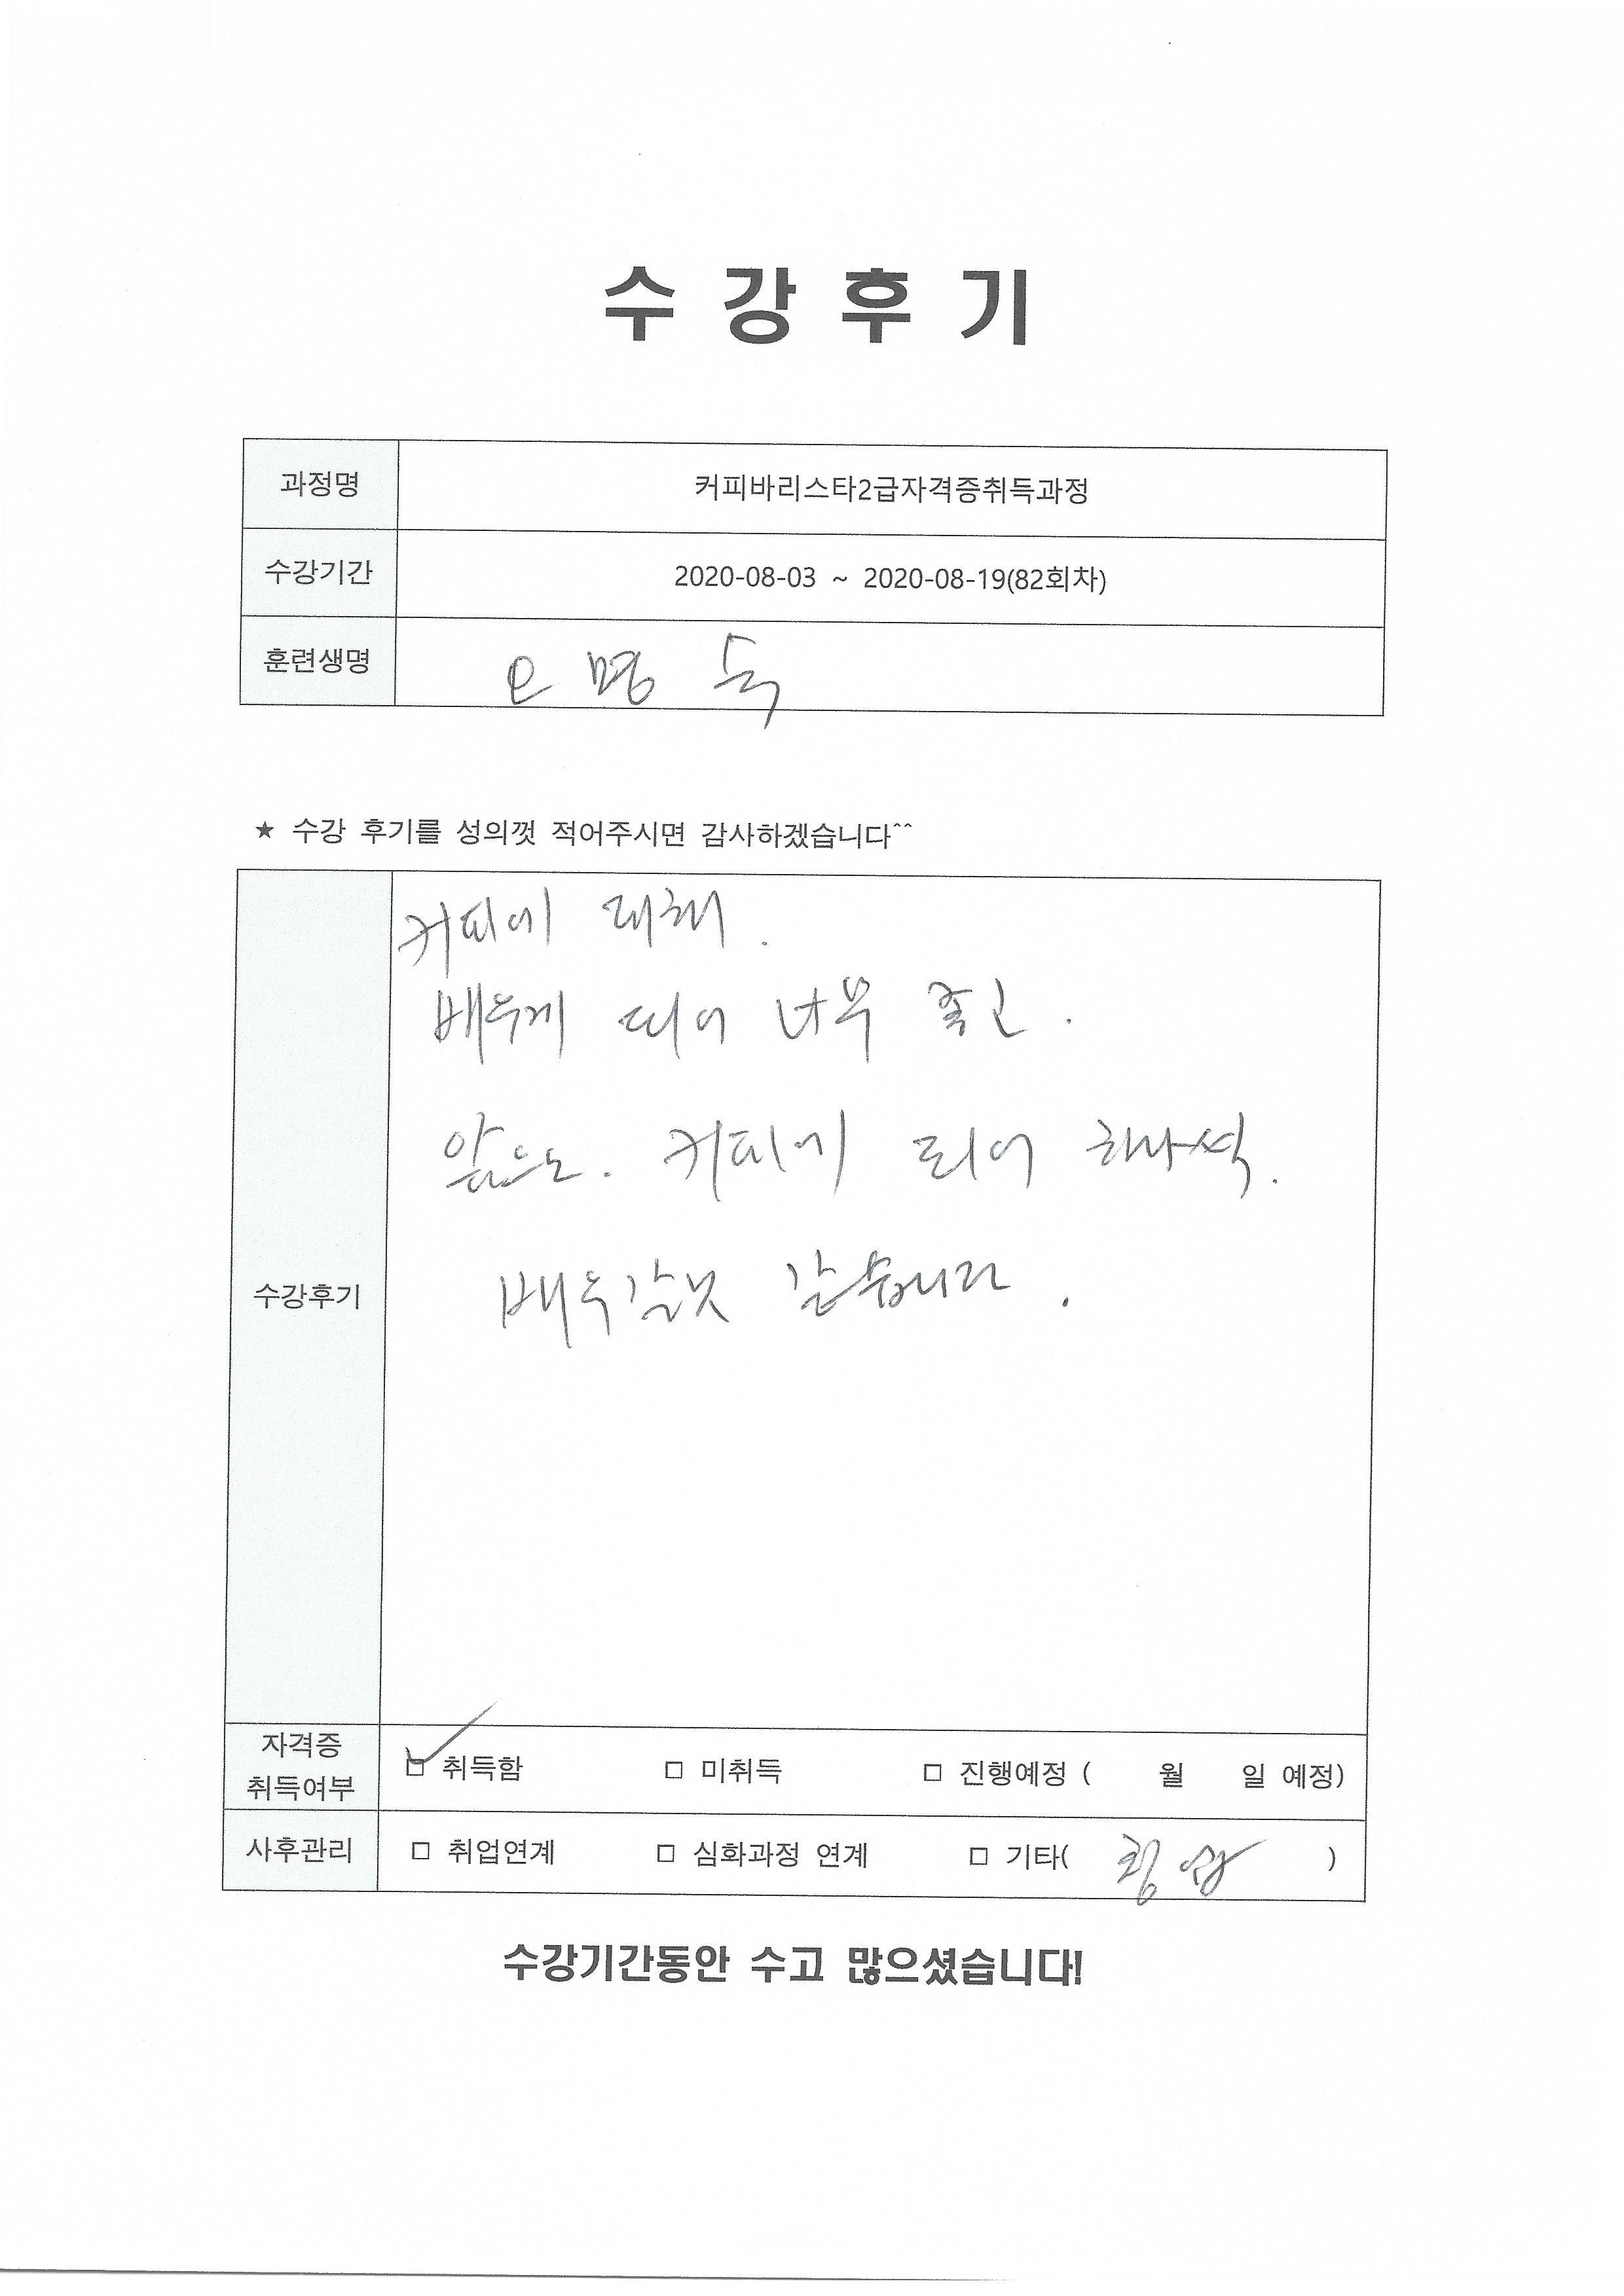 수 강 후 기
과정명 커피바리스타2급자격증취득과정
수강기간 2020-08-03 ~ 2020-08-19(82회차)
훈련생명 오 명 숙
★ 수강 후기를 성의껏 적어주시면 감사하겠습니다^^
수강후기
커피에 대해.
배우게 되어 너무 좋고.
앞으로. 커피에 되어 하나씩.
배우갈것 같습니다.
자격증
취득여부
□ 취득함 □ 미취득 □ 진행예정 ( 월 일 예정)
사후관리 □ 취업연계 □ 심화과정 연계 □ 기타( 창업 )
수강기간동안 수고 많으셨습니다!